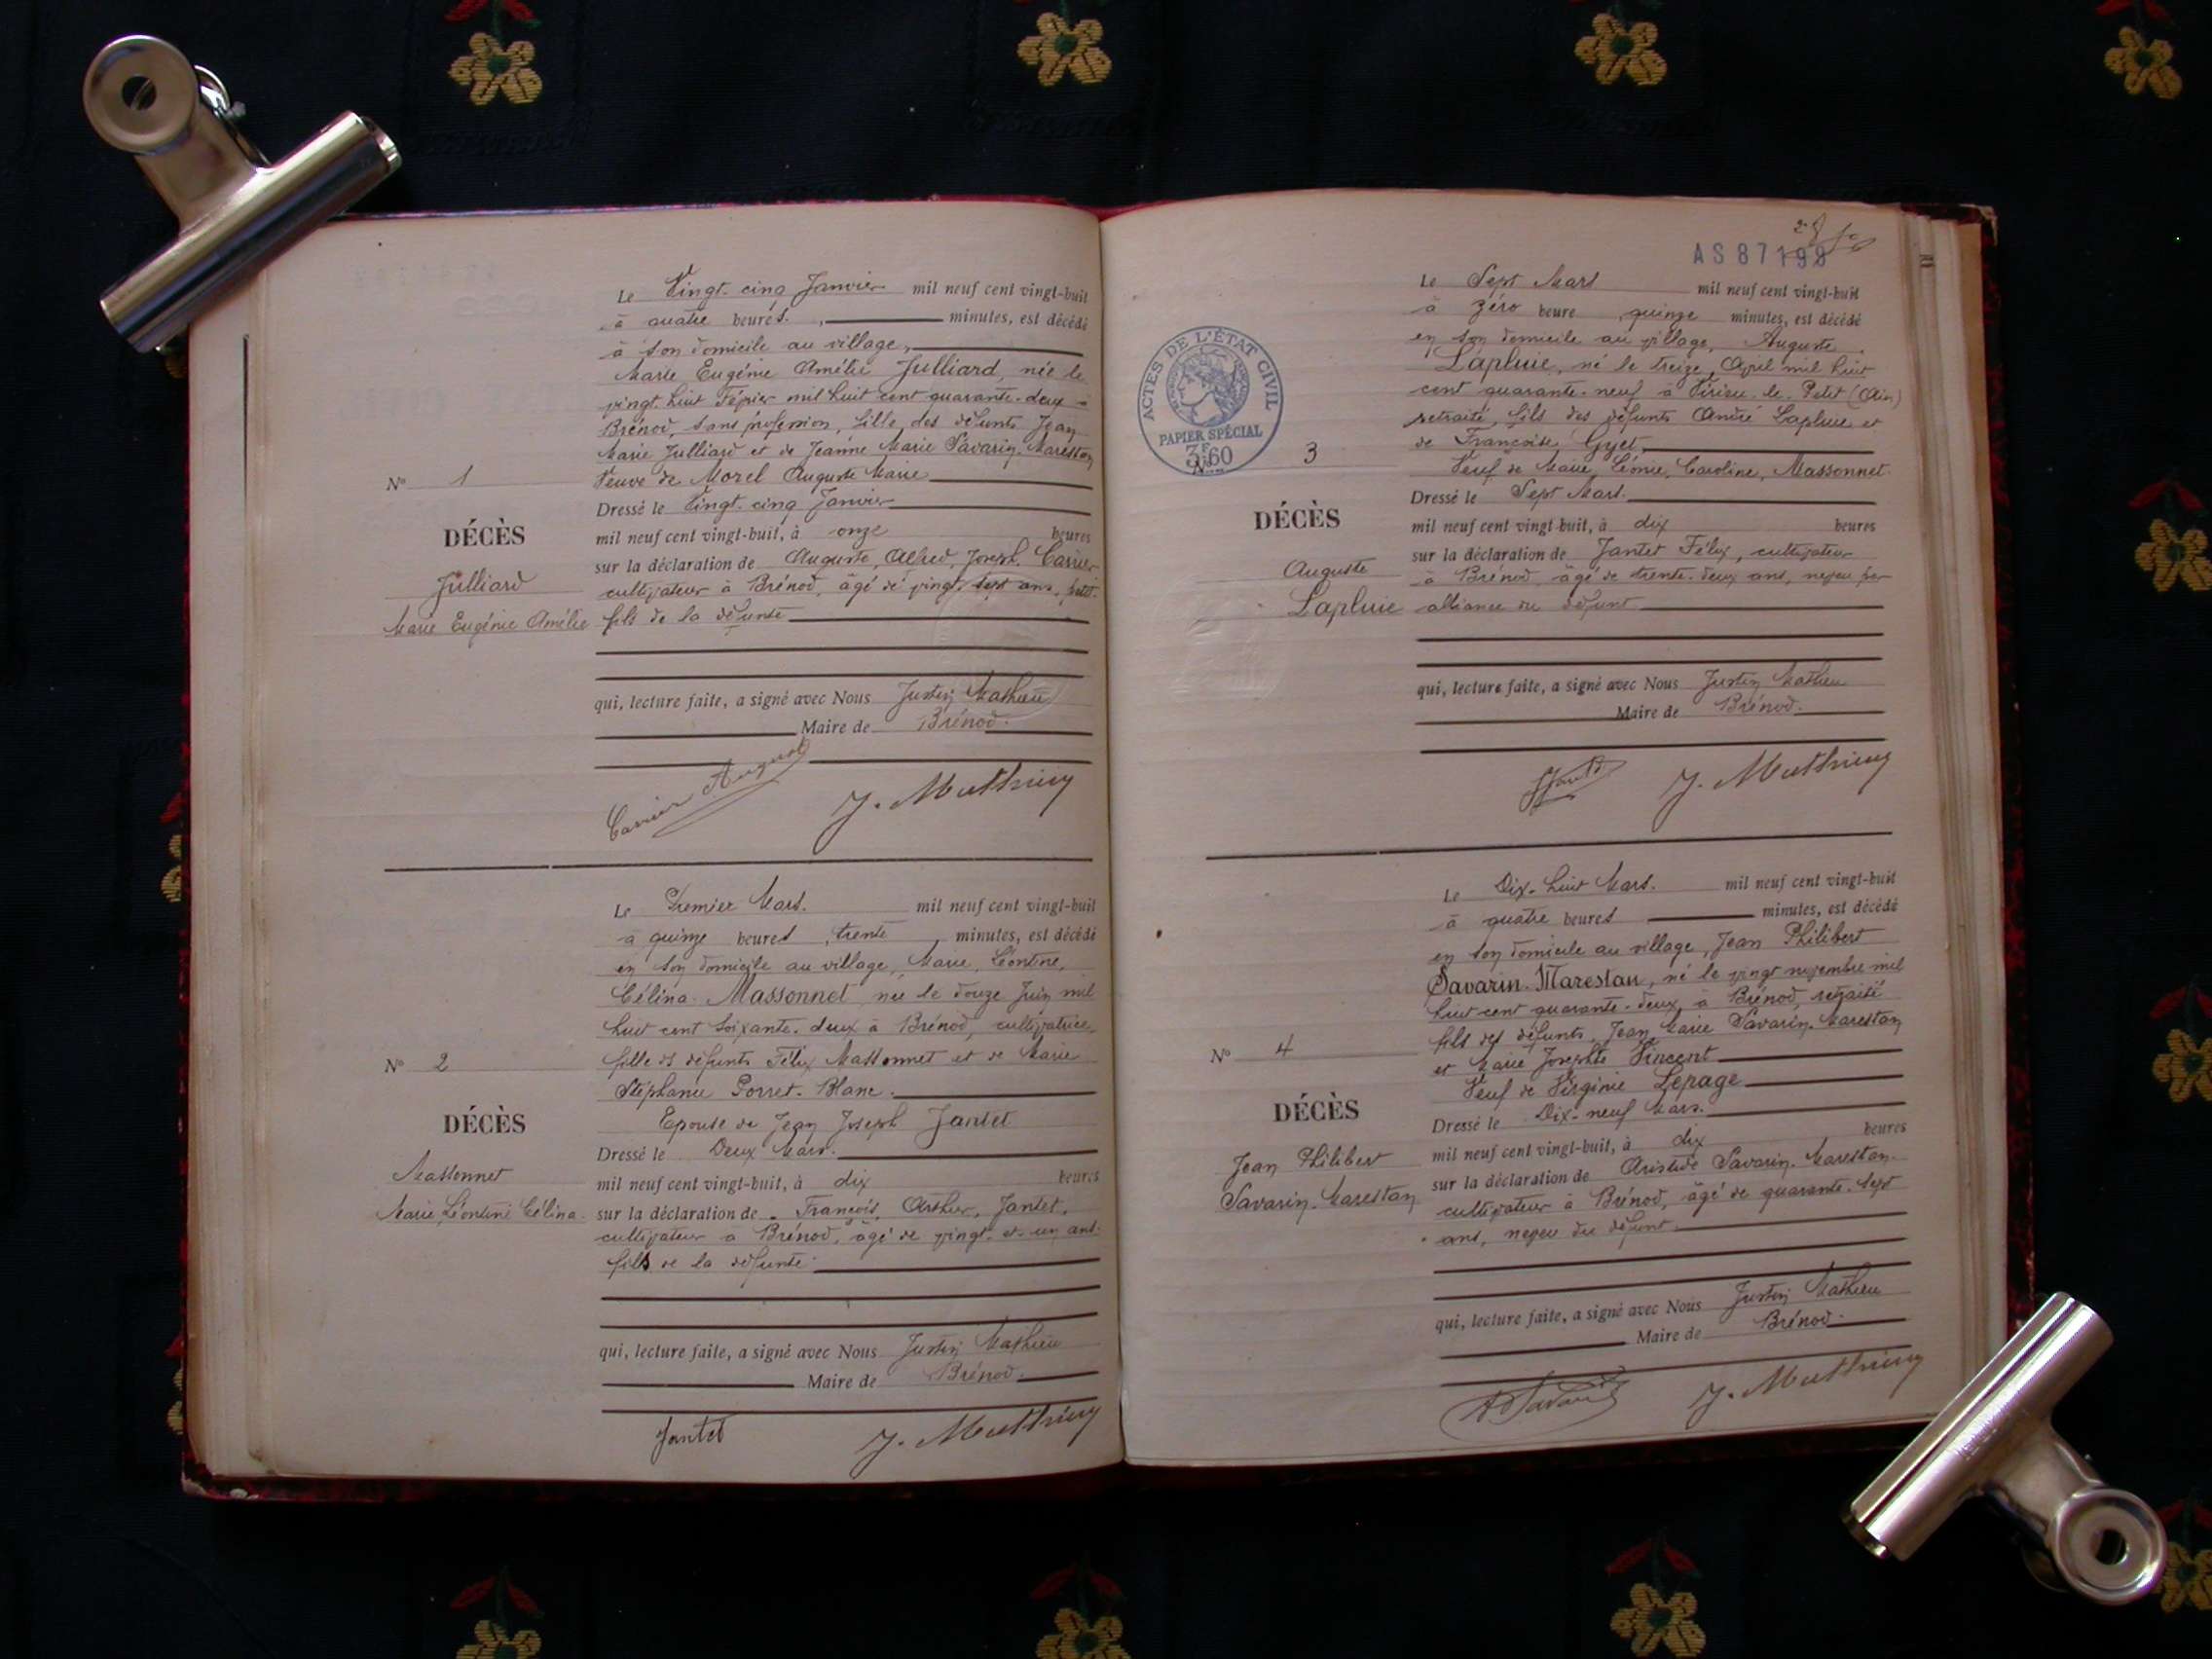 Le Vingt-cinq Janvier mil neuf cent vingt-huit
à quatre heures, minutes, est décédé
à son domicile au village,
Marie Eugénie Amélie Julliard, née le
vingt-huit Février mil huit cent quarante-deux à
Brénod, sans profession, fille des défunts Jean
Marie Julliard et de Jeanne Marie Savarin-Marestan
N° 1 Veuve de Morel Auguste Marie
Dressé le Vingt-cinq Janvier
DÉCÈS
mil neuf cent vingt-huit, à onze heures
sur la déclaration de Auguste, Alfred, Joseph Carrier
Julliard
cultivateur à Brénod, âgé de vingt-sept ans, petit-
Marie Eugénie Amélie
fils de la défunte
qui, lecture faite, a signé avec Nous Justin Mathieu
Maire de Brénod.
Carrier Auguste J. Mathieu
Le Premier Mars. mil neuf cent vingt-huit
à quinze heures, trente minutes, est décédé
en son domicile au village, Marie, Léontine,
Célina Massonnet née le douze Juin mil
huit cent soixante-deux à Brénod, cultivatrice,
N° 2 fille ds défunts Félix Massonnet et de Marie
Stéphanie Porret-Blanc.
DÉCÈS
Epouse de Jean Joseph Jantet
Dressé le Deux Mars.
Massonnet
mil neuf cent vingt-huit, à dix heures
Marie Léontine Célina
sur la déclaration de François, Arthur, Jantet,
cultivateur à Brénod, âgé de vingt-et-un ans.
fils de la défunte
qui, lecture faite, a signé avec Nous Justin Mathieu
Maire de Brénod.
Jantet J. Mathieu
AS 87199
ACTES DE L'ÉTAT CIVIL
PAPIER SPÉCIAL
3F60
Le Sept Mars mil neuf cent vingt-huit
à zéro heure, quinze minutes, est décédé
en son domicile au village, Auguste
Lapluie, né le treize Avril mil huit
cent quarante-neuf à Virieu-le-Petit (Ain)
retraité, fils des défunts André Lapluie et
N° 3 de Françoise Gyet,
Veuf de Marie, Léonie, Caroline, Massonnet.
Dressé le Sept Mars.
DÉCÈS
mil neuf cent vingt-huit, à dix heures
sur la déclaration de Jantet Félix, cultivateur
Auguste
à Brénod âgé de trente-deux ans, neveu par
Lapluie
alliance du défunt
qui, lecture faite, a signé avec Nous Justin Mathieu
Maire de Brénod.
J. Mathieu
Le Dix-huit Mars. mil neuf cent vingt-huit
à quatre heures minutes, est décédé
en son domicile au village, Jean Philibert
Savarin-Marestan, né le vingt novembre mil
huit cent quarante-deux à Brénod, retraité
fils des défunts Jean Marie Savarin-Marestan
N° 4 et Marie Josephte Vincent
Veuf de Virginie Lepage
DÉCÈS
Dressé le Dix-neuf Mars.
mil neuf cent vingt-huit, à dix heures
Jean Philibert
sur la déclaration de Aristide Savarin-Marestan
Savarin-Marestan
cultivateur à Brénod, âgé de quarante-sept
ans, neveu du défunt.
qui, lecture faite, a signé avec Nous Justin Mathieu
Maire de Brénod.
J. Mathieu